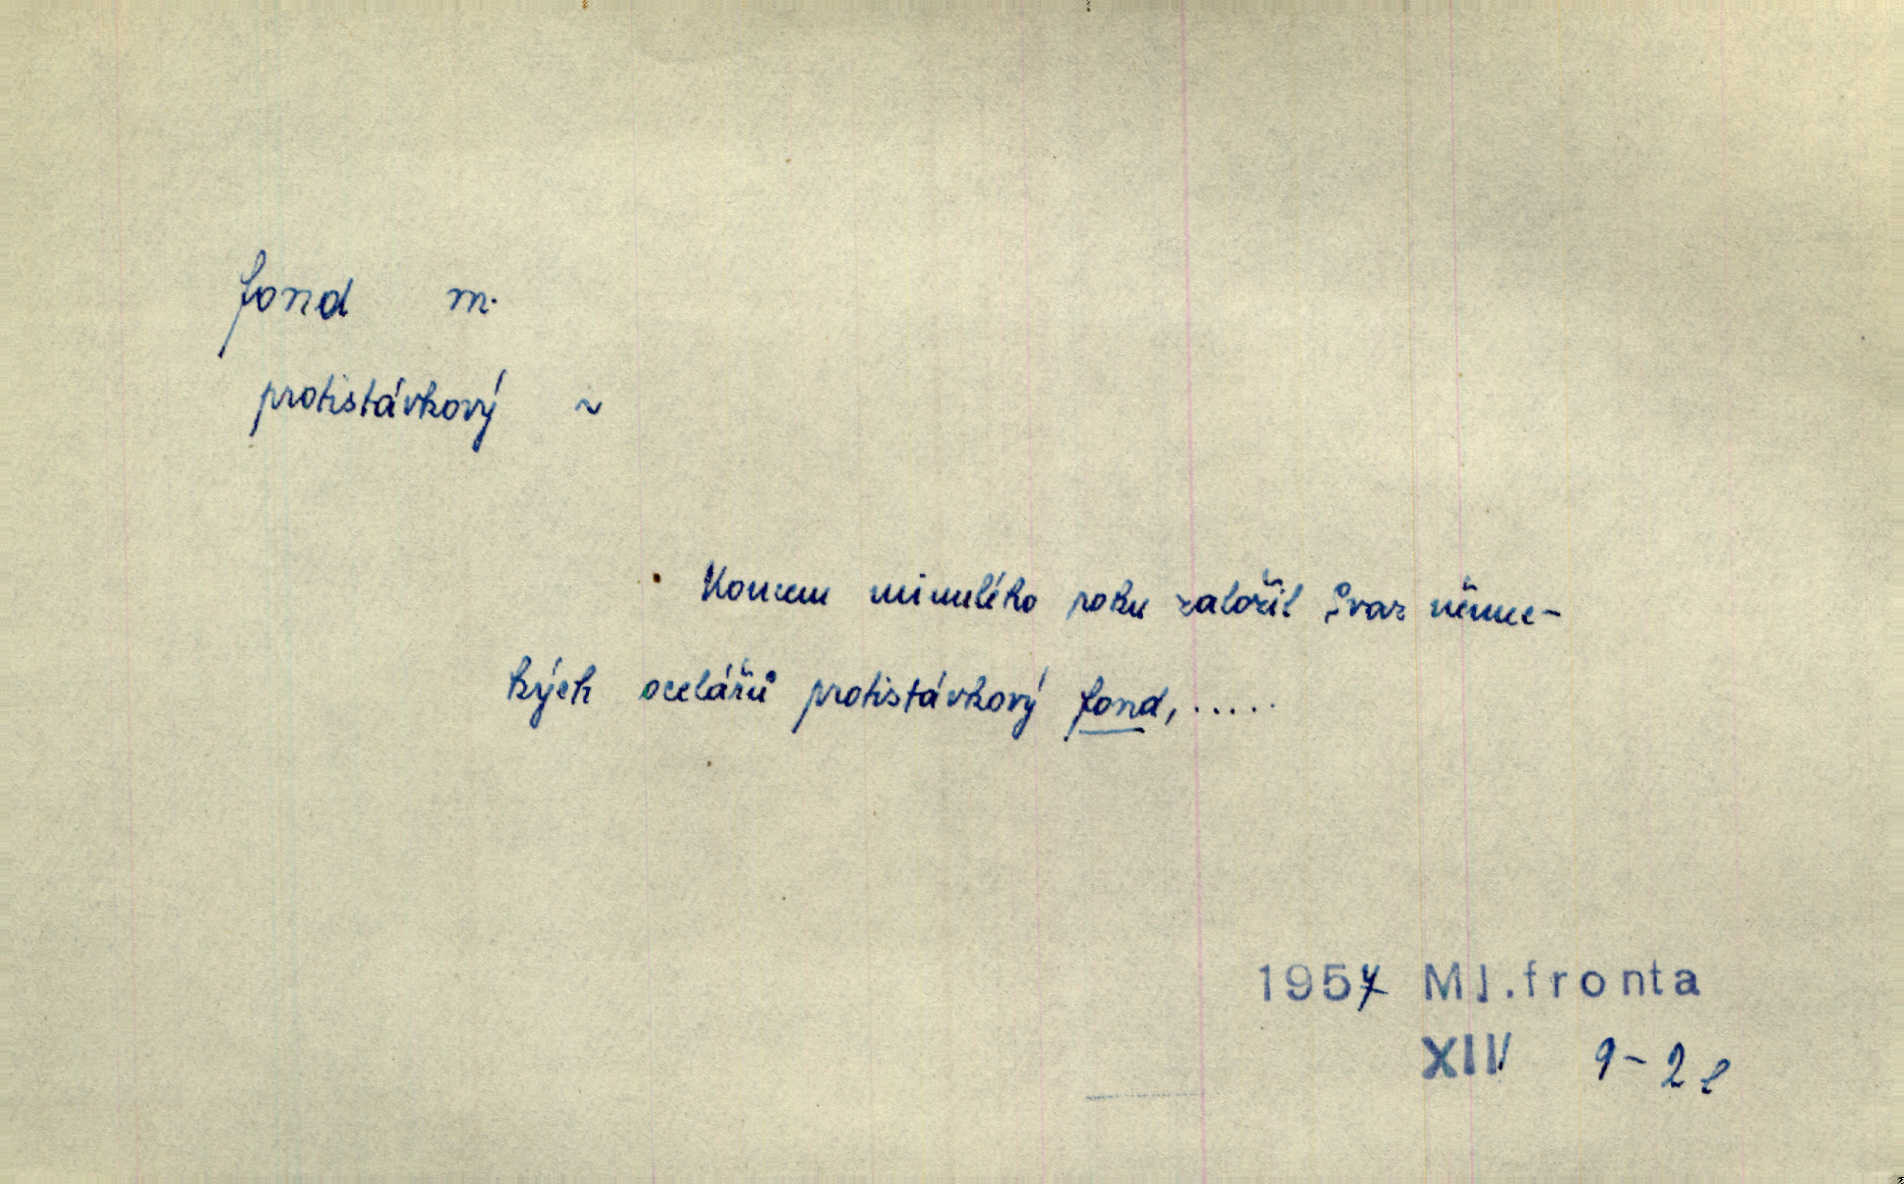 fond m.
protistávkový ~
Koncem minulého roku založil Svaz němec-
kých ocelářů protistávkový fond, .....
1957 Ml.fronta
XIII 9-2